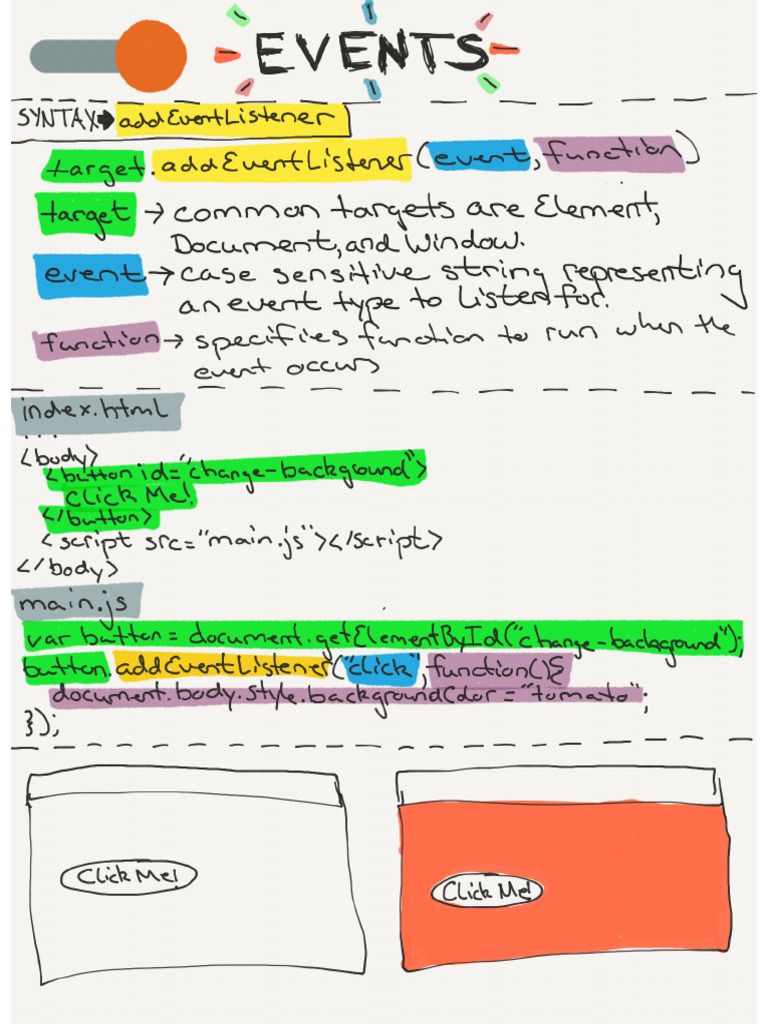 EVENTS
SYNTAX➡addEventListener
target.addEventListener(event, function)
target → common targets are Element,
Document, and Window.
event → case sensitive string representing
an event type to Listed for.
function → specifies function to run when the
event occurs
index.html
...
<body>
<button id="change-background">
Click Me!
</button>
<script src="main.js"></script>
</body>
main.js
var button = document.getElementById("change-background");
button.addEventListener("click", function(){
document.body.style.backgroundColor = "tomato";
});
Click Me!
Click Me!